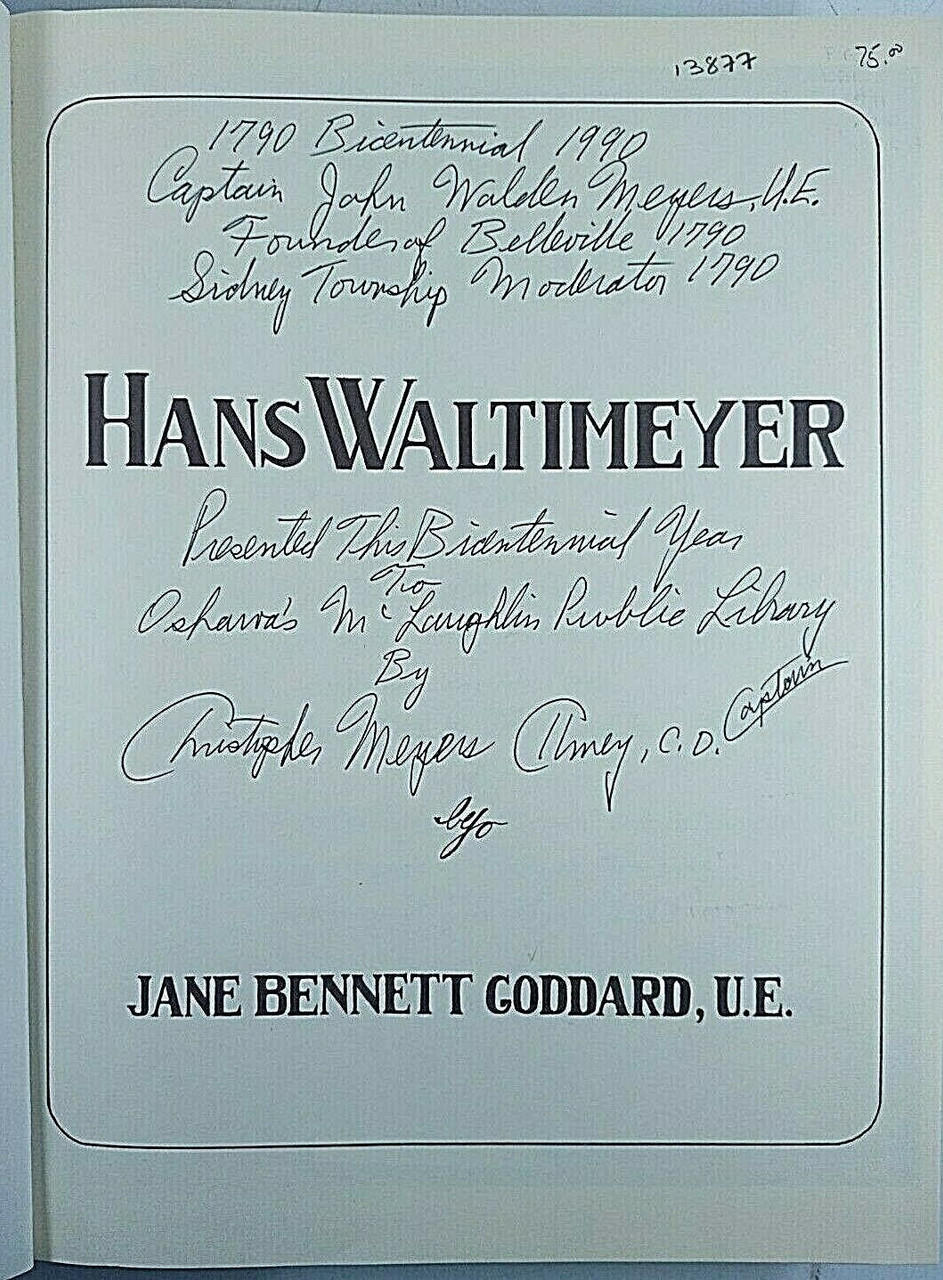 13877 75.00
1790 Bicentennial 1990
Captain John Walden Meyers, U.E.
Founder of Belleville 1790
Sidney Township Moderator 1790
HANS WALTIMEYER
Presented This Bicentennial Year
To
Oshawa's McLaughlin Public Library
By
Christopher Meyers Almey, C.D. Captain
JANE BENNETT GODDARD, U.E.